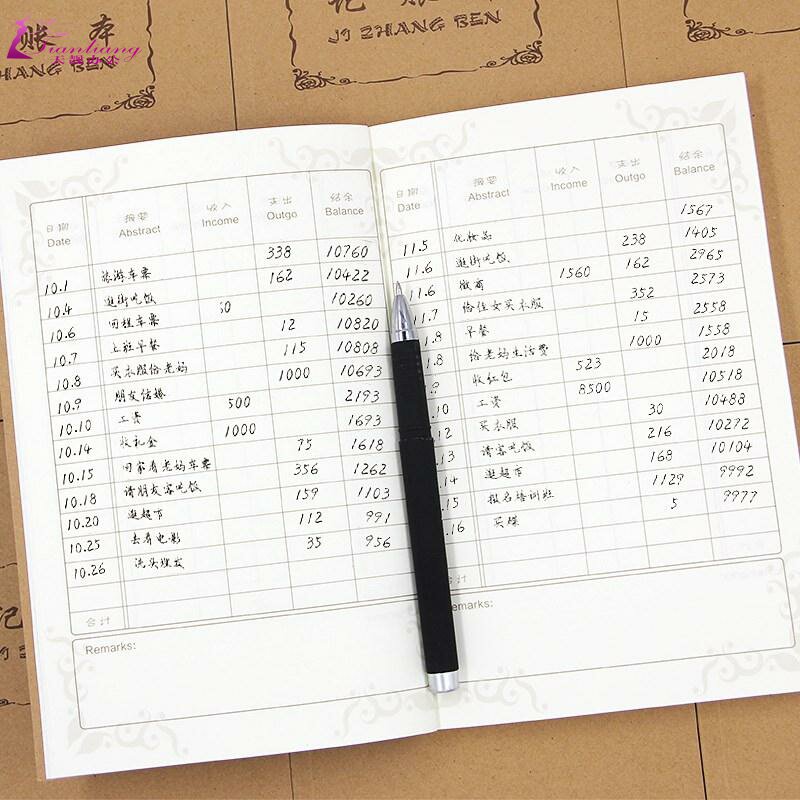 账本
Tianhang
天翔办公
ZHANG BEN
记账本
JI ZHANG BEN
日期 摘要 收入 支出 结余
Date Abstract Income Outgo Balance
10.1 旅游车票 338 10760
10.4 逛街吃饭 162 10422
10.6 回程车票 50 10260
10.7 上班早餐 12 10820
10.8 买衣服给老妈 115 10808
10.9 朋友结婚 1000 10693
10.10 工资 500 2193
10.14 收礼金 1000 1693
10.15 回家看老妈车票 75 1618
10.18 请朋友客吃饭 356 1262
10.20 逛超市 159 1103
10.25 去看电影 112 991
10.26 洗头理发 35 956
合计
Remarks:
日期 摘要 收入 支出 结余
Date Abstract Income Outgo Balance
11.5 化妆品 1567
11.6 逛街吃饭 238 1405
11.6 微商 1560 162 2965
11.7 给侄女买衣服 352 2573
.8 早餐 15 2558
.8 给老妈生活费 1000 1558
.9 收红包 523 2018
10 工资 8500 10518
12 买衣服 30 10488
.13 请客吃饭 216 10272
.14 逛超市 168 10104
.15 报名培训班 1129 9992
.16 买 5 9977
合计
emarks:
记
JI